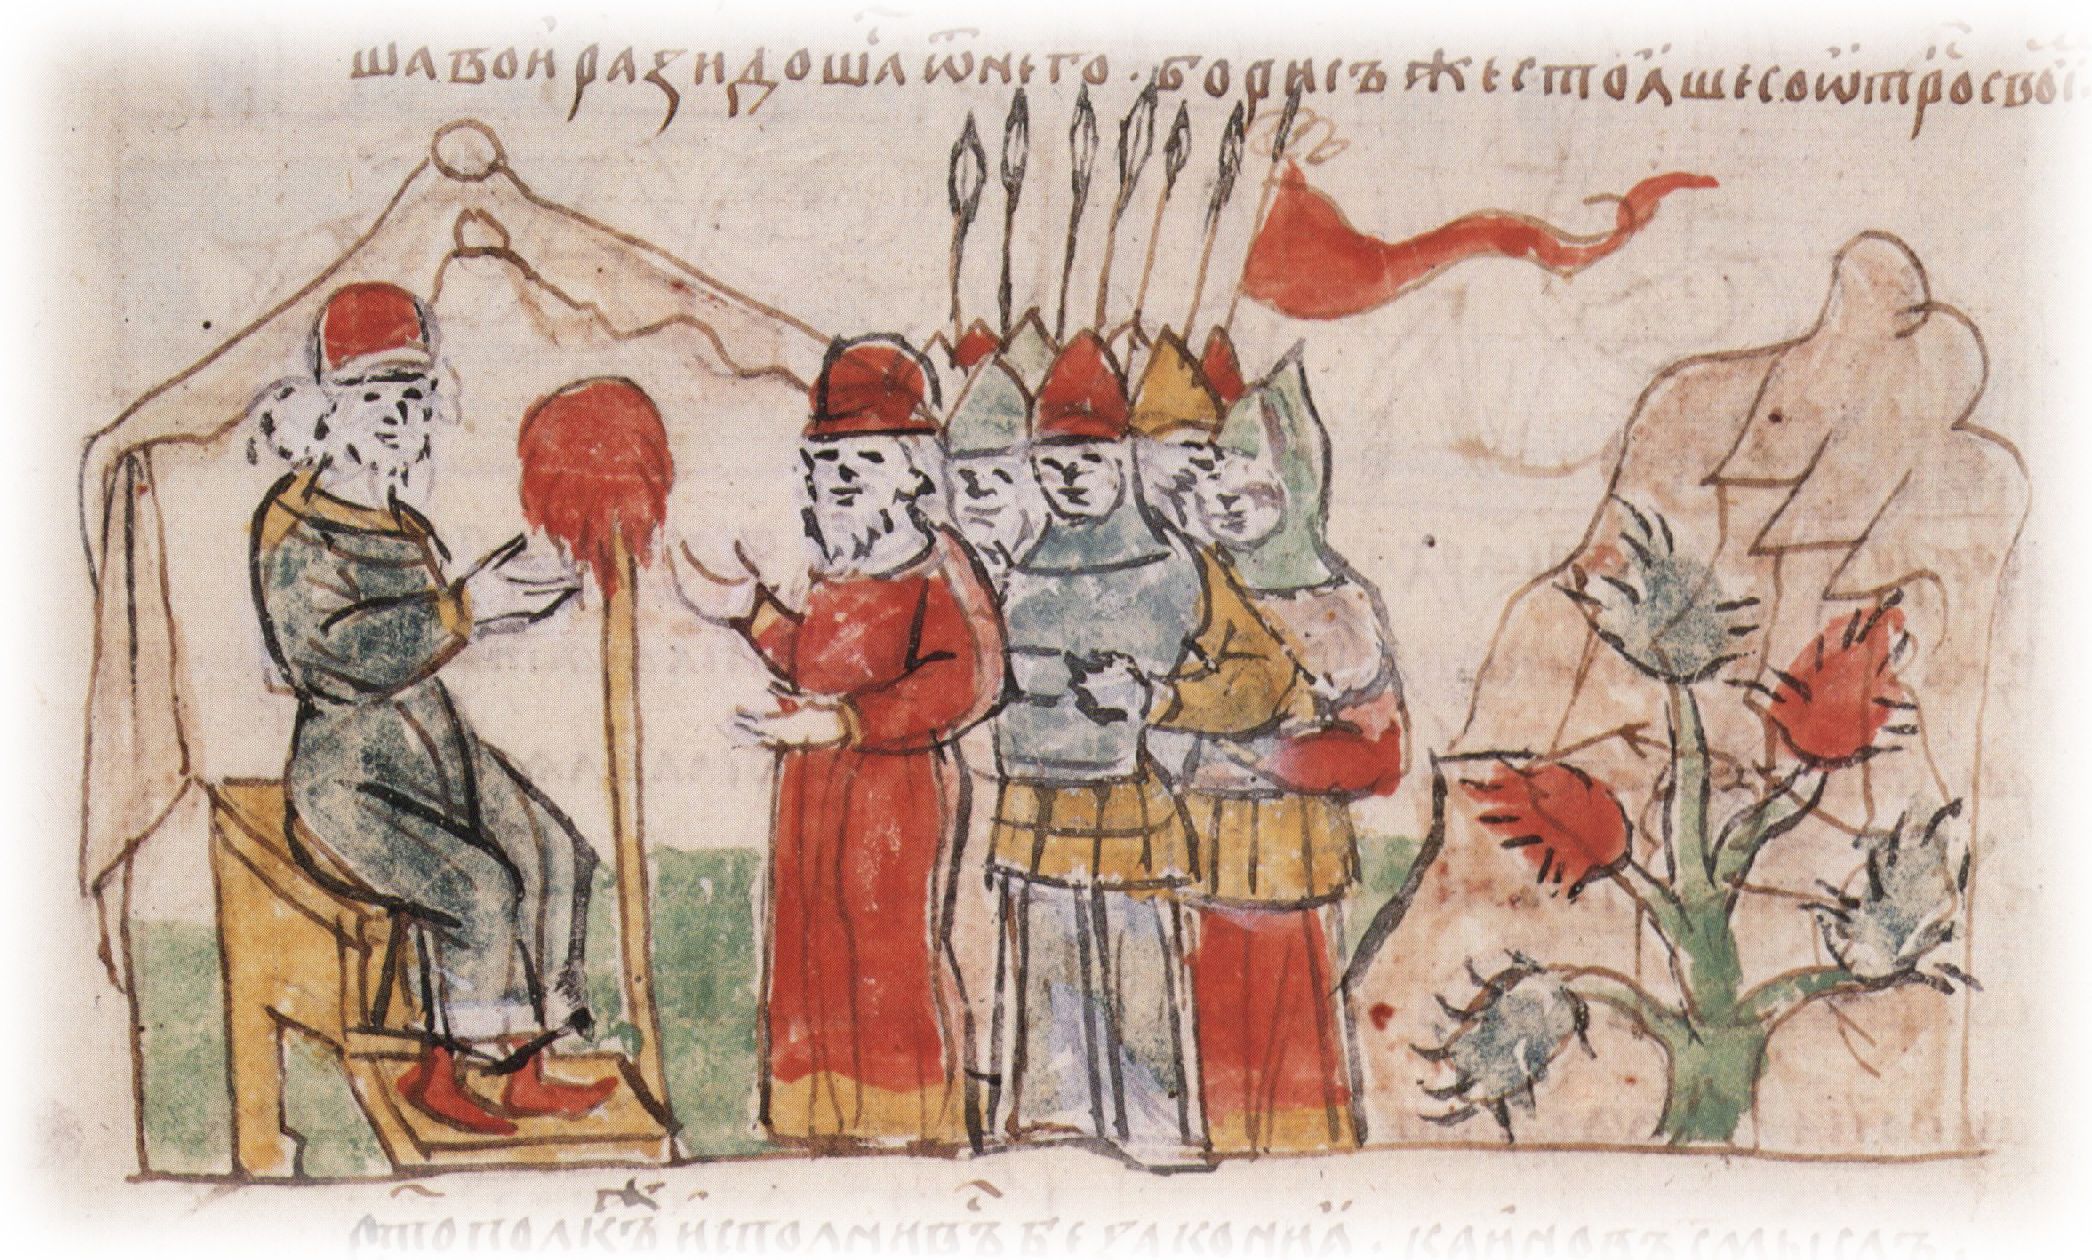 шавоиразидошаѿнего · борисъжестоꙗшесоѿтрⷪ҇свои
с҃тополкъжⷤеисполнивъ҃безакониꙗ · каиновъсмыслъ